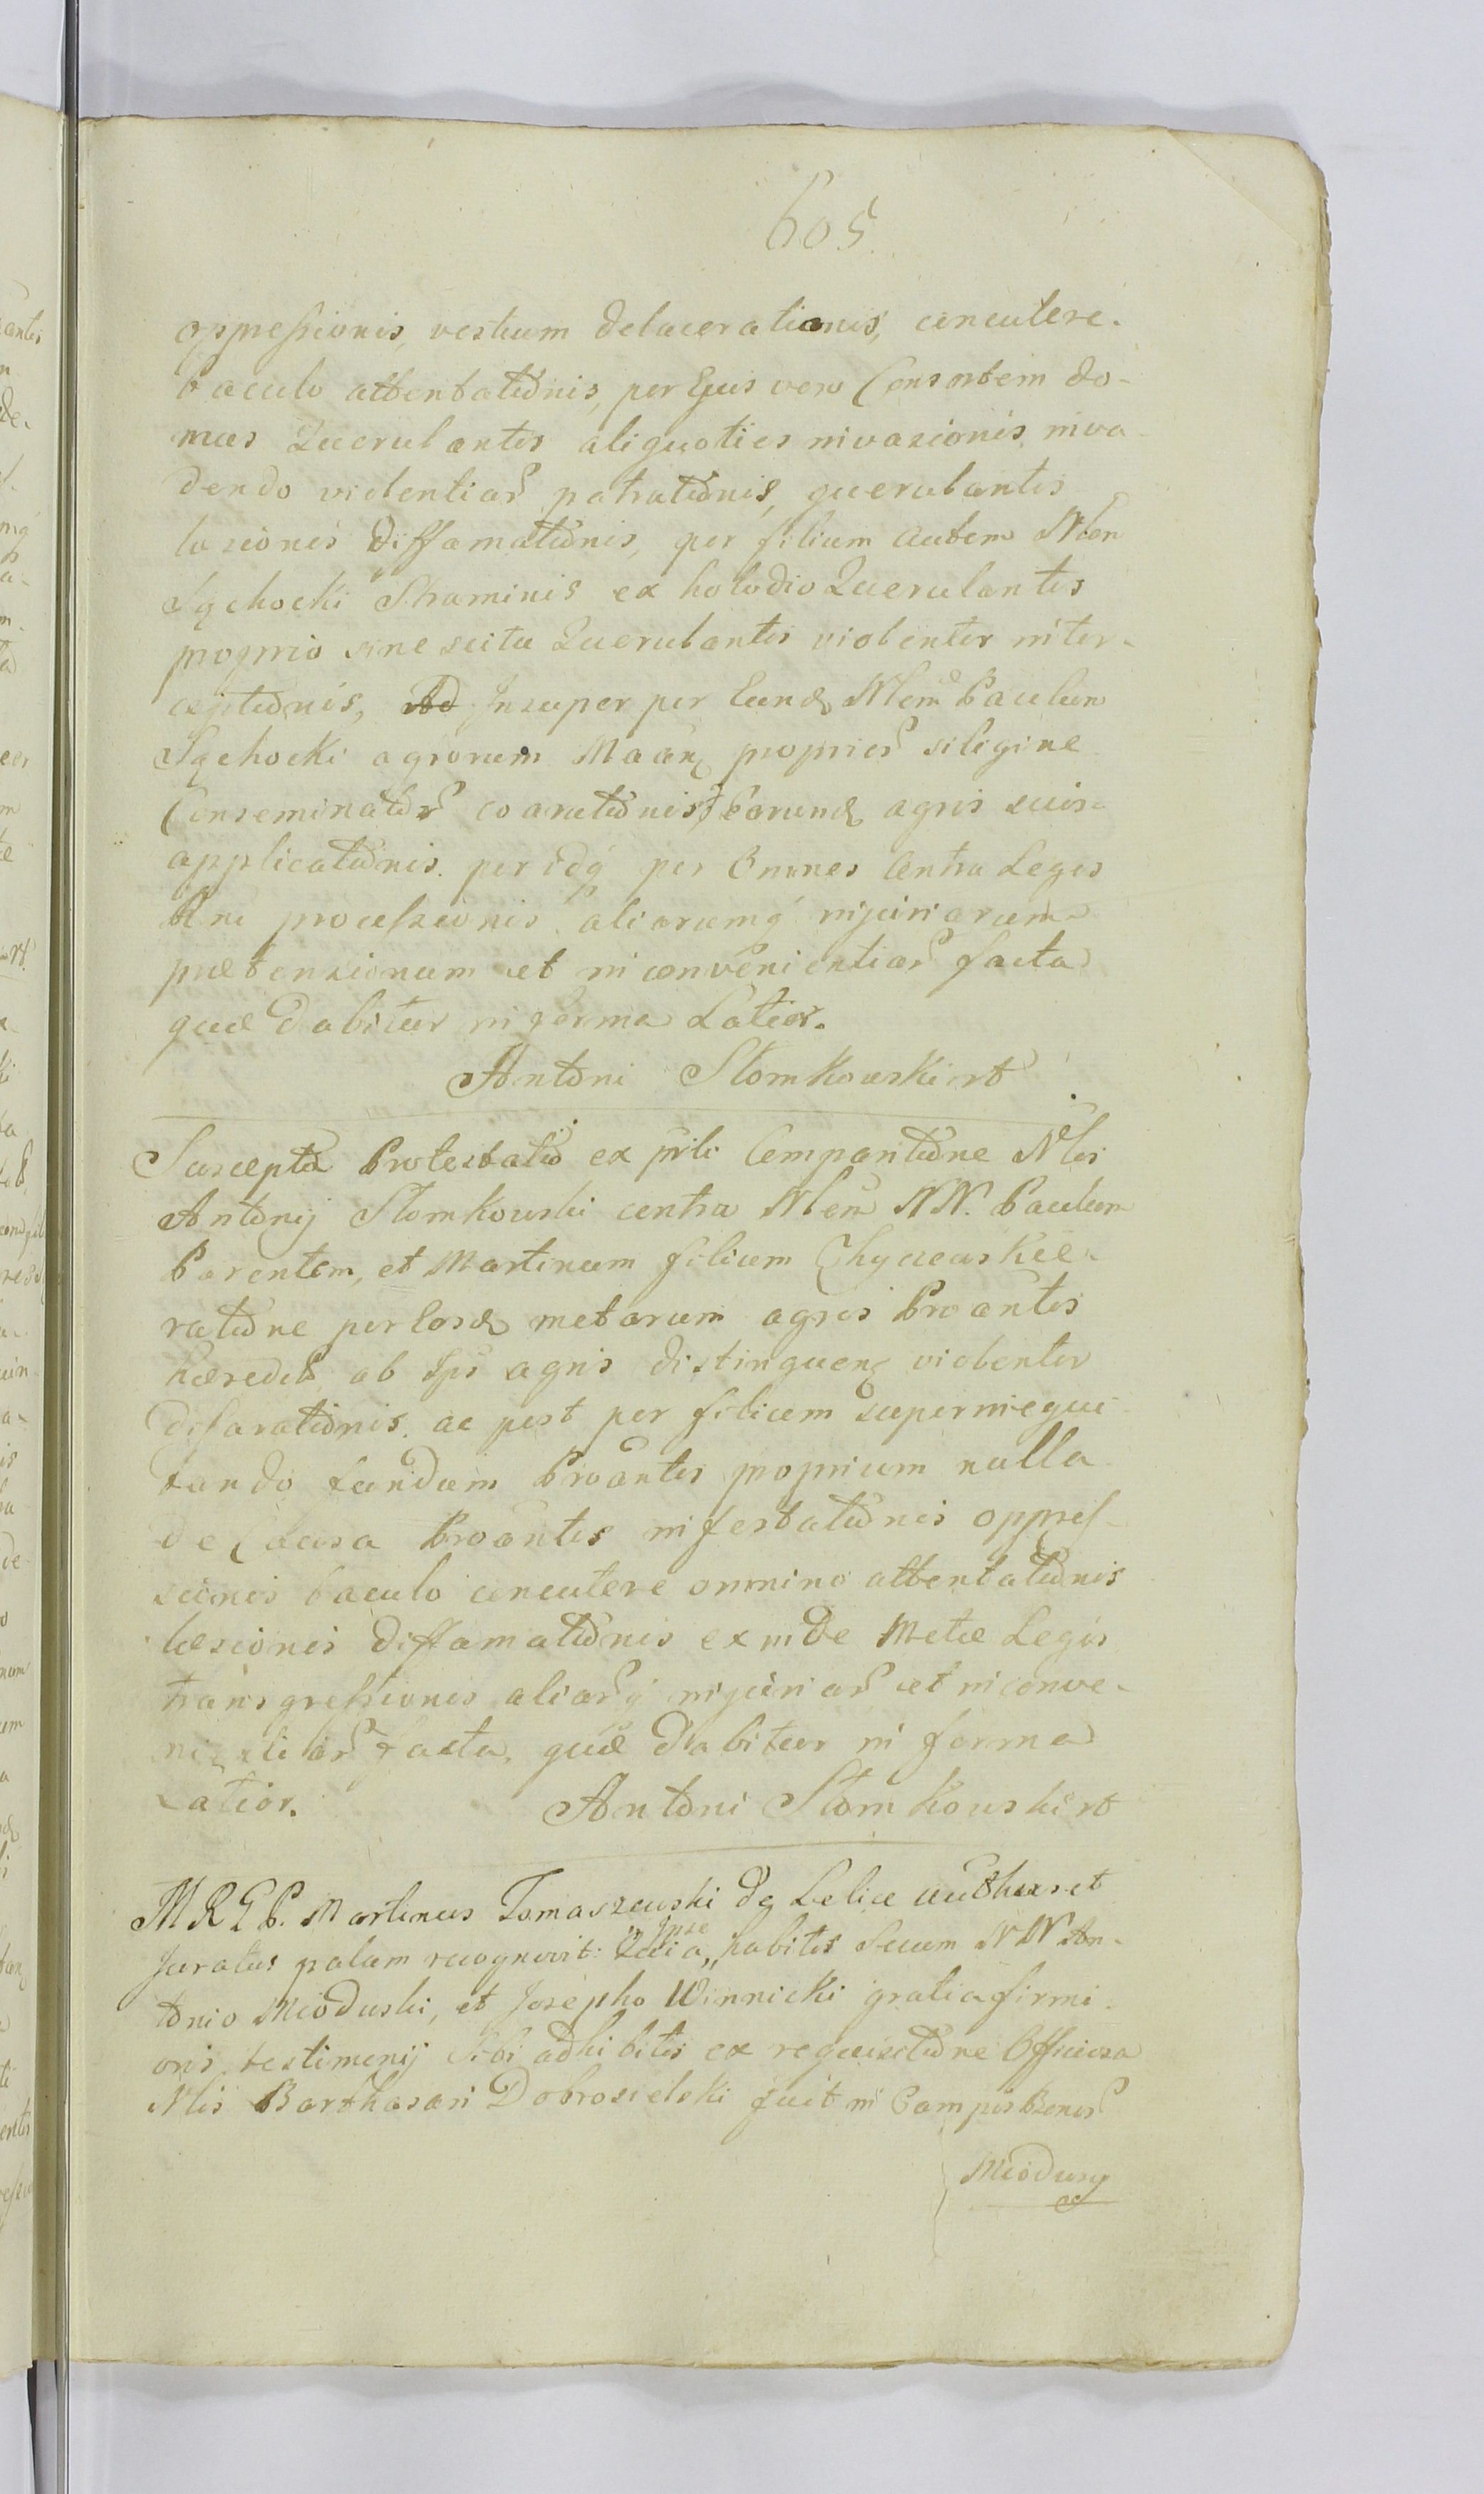 605.
oppressionis, vestium delacerationis, concutere
baculo attentationis, per Ejus vero Consortem do-
mus Querulantis aliquoties invasionis, inva-
dendo violentiar patrationis, querulantis
læsionis diffamationis, per filium autem Nlem
Sąchocki Straminis ex holodio Querulantis
proprio sine scitu Querulantis violenter inter-
ceptionis, Insuper per Eund Nlem Paulum
Sąchocki agrorum proprior siligine
Conseminator coarationis, Eorund agris suis
applicationis. per idq per Omnes Contra Leges
Rni processionis aliarumq injuriarum
prætensionum et inconvenientiar facta
quæ dabitur in forma Latior.
Antoni Słomkowski
Suscepta Protestatio ex Comparitione Nlis
Antonij Słomkowski contra Nlem NN. Paulum
Parentem, et Martinum filium
ratione per Eosd metarum agros Proantis
hæredit ab Ips agris distinguen violenter
disarationis. ac post per filium superinequi-
tando fundum Proantis proprium nulla
de Causa Proantis infestationis oppres-
sionis baculo concutere omnino attentationis
læsionis diffamationis exinde Metæ Legis
transgressionis aliarq injuriar et inconve-
nientiar facta, quæ dabitur in forma
Latior. Antoni Słomkowski
MRGP. Martinus Tomaszewski de author et
Juratus palam recognovit: Quia „Ipse„ habitis Secum NN An-
tonio Mioduski, et Josepho Winnicki gratia firmi-
oris testimonij Sibi adhibitis ex requisitione Officiosa
Nlis Barthasari Dobrosielski fuit in Campis Bonor
Miodusy